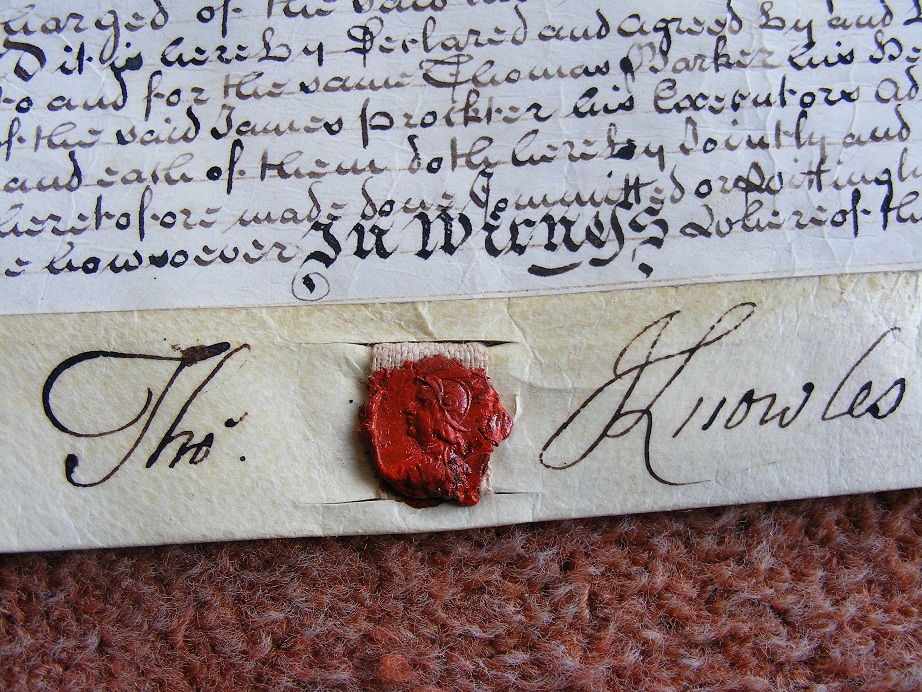 harged of the said
D it is hereby Declared and agreed by and
to and for the same Thomas Parker his He
of the said James Prockter his Executors Ad
and each of them doth hereby Jointly and
heretofore made done Committed or Wittingly
e howsoever In Witness Whereof th
Tho: Knowles